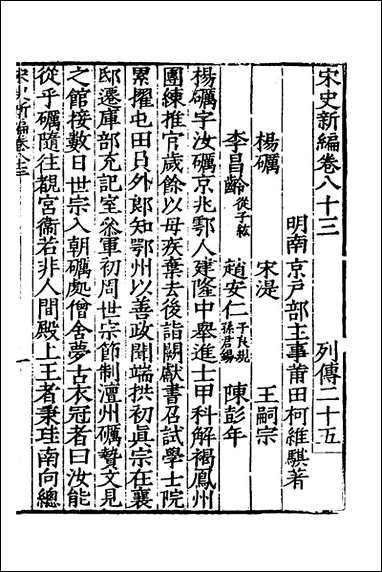 宋史新編卷八十三 列傳二十五
明南京戶部主事莆田柯維騏著
楊礪 宋湜 王嗣宗
李昌齡從子紘 趙安仁子良規孫君錫 陳彭年
楊礪字汝礪京兆鄠人建隆中舉進士甲科解褐鳳州
團練推官歲餘以母疾棄去後詣闕獻書召試學士院
累擢屯田員外郎知鄂州以善政聞端拱初眞宗在襄
邸遷庫部充記室叅軍初周世宗節制澶州礪贄文見
之館接數日世宗入朝礪處僧舍夢古衣冠者曰汝能
從乎礪隨往覩宮衞若非人間殿上王者秉珪南向總
宋史新編卷八十三
一